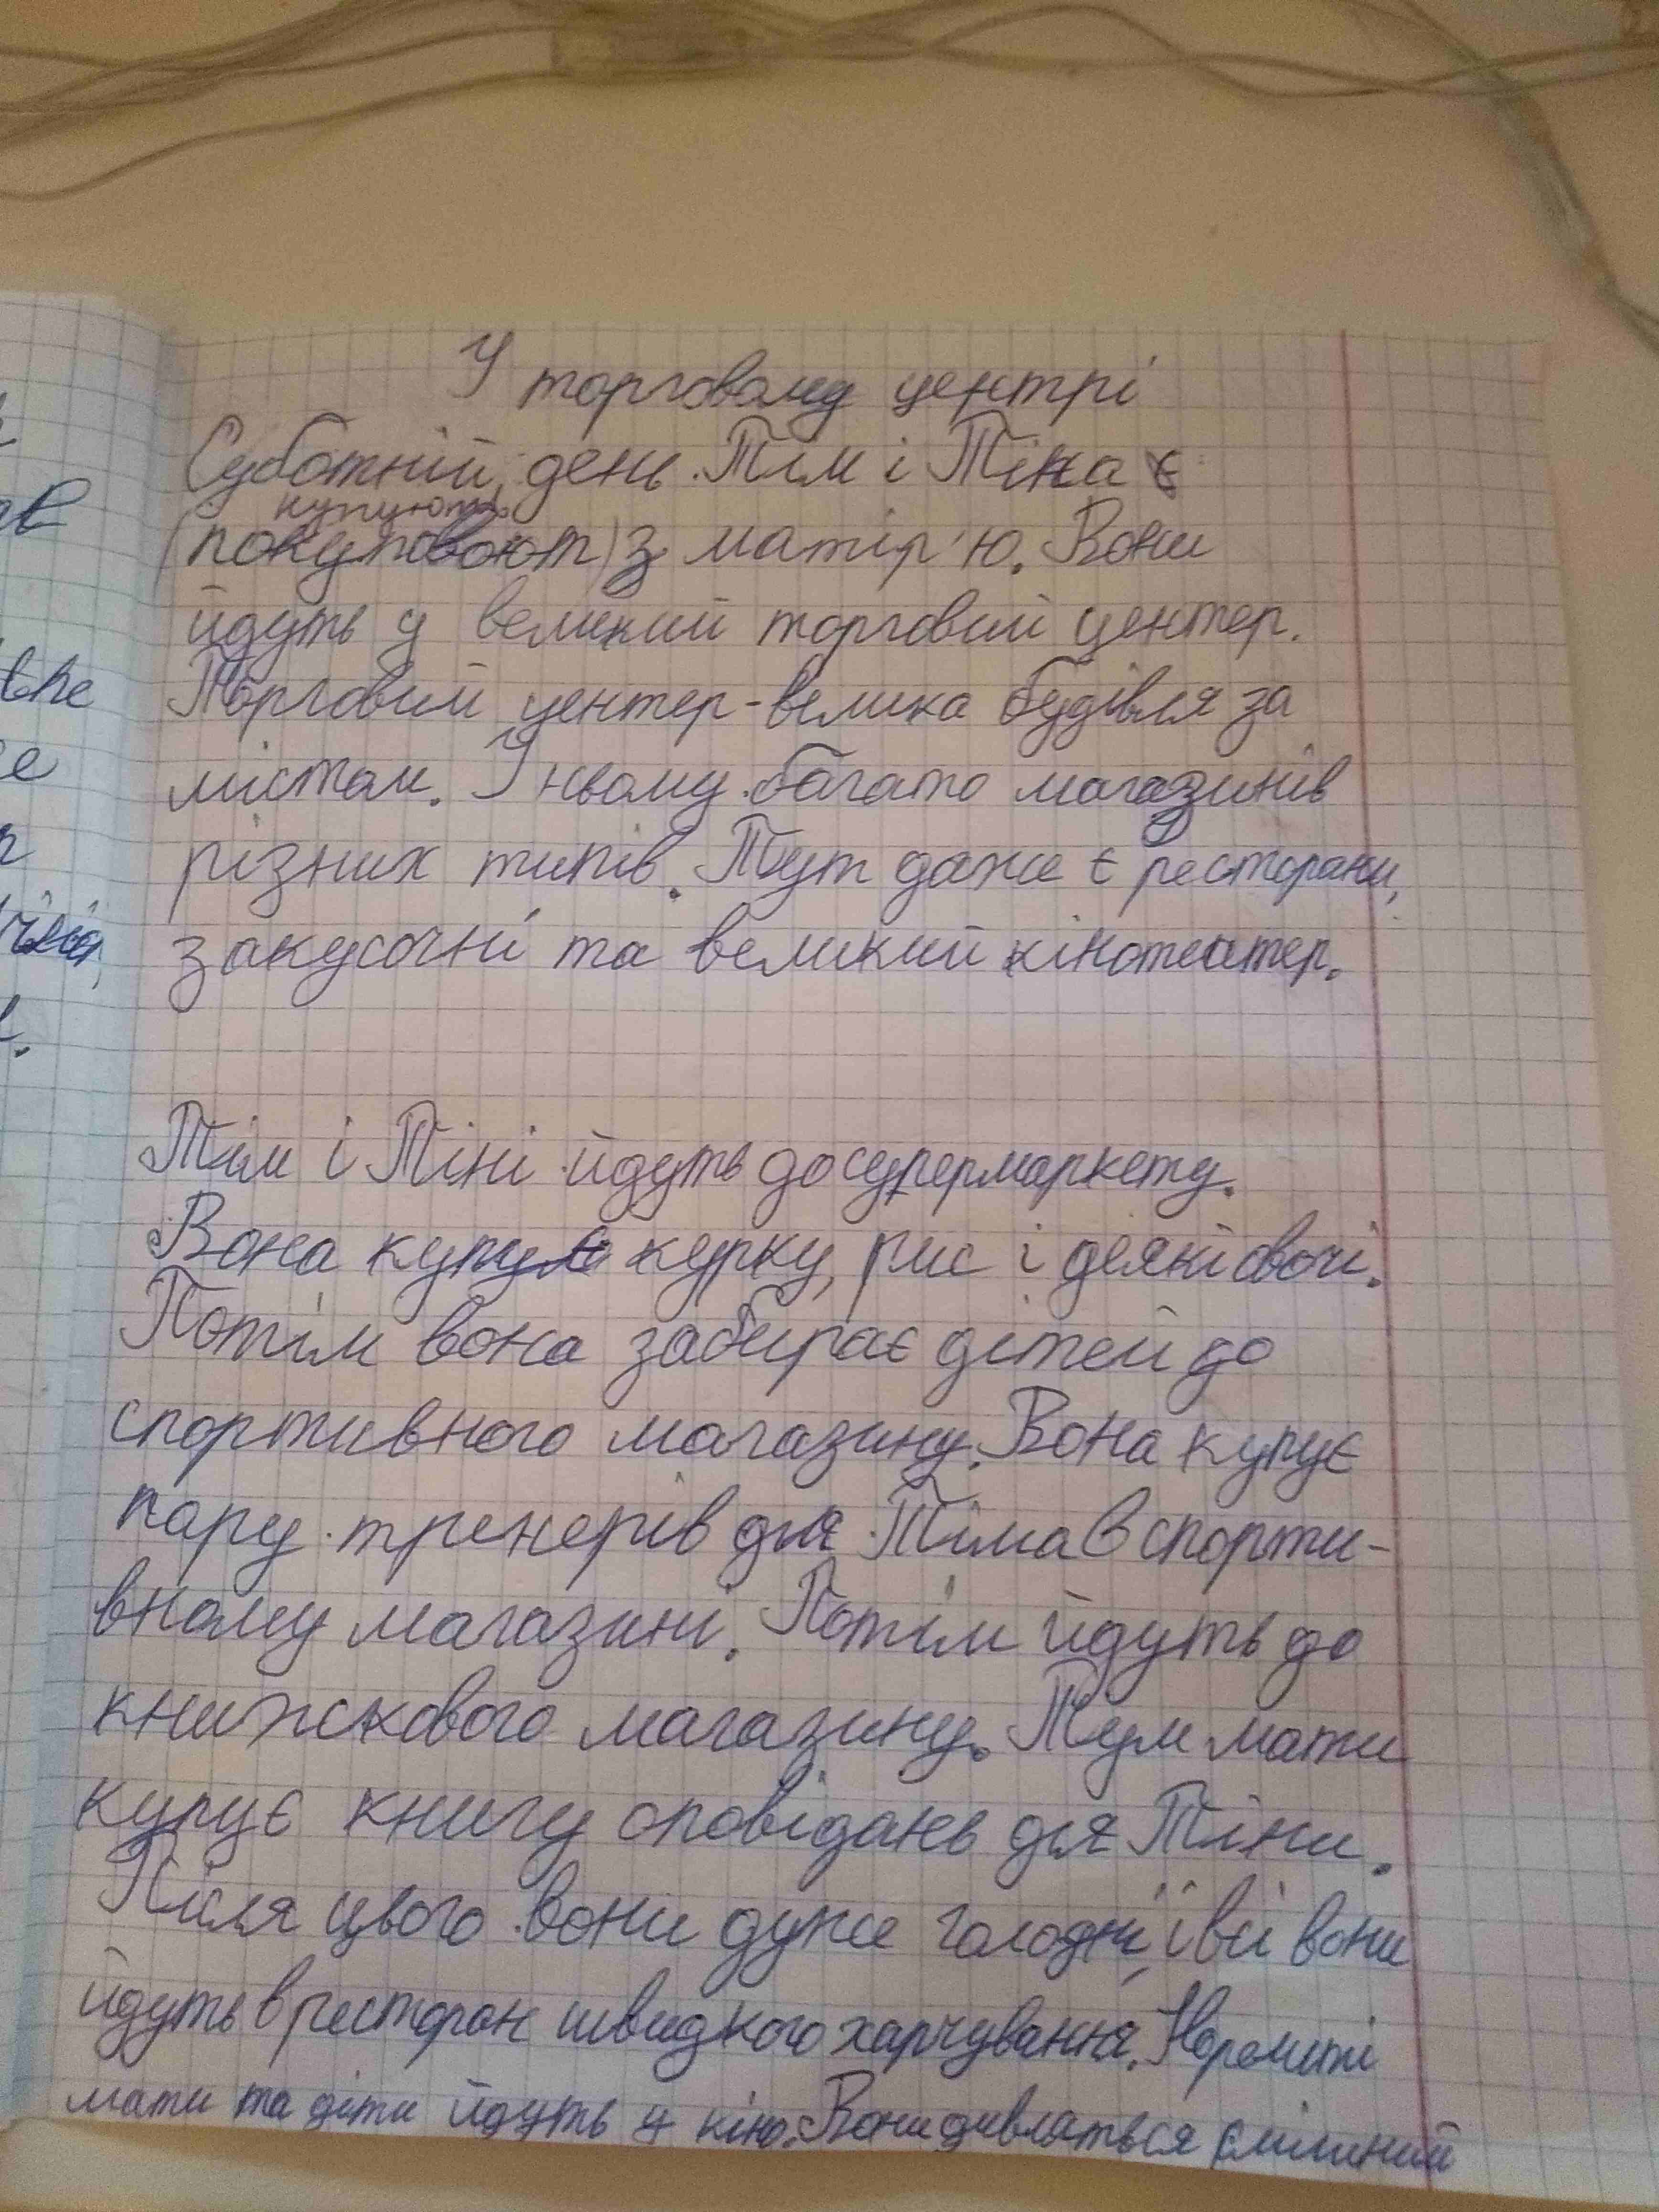 У торговому центрі
Суботній день. Тім і Тіна є
купують
(покуповоют) з матір'ю. Вони
йдуть у великий торговий центер.
Торговий центер-велика будівля за
містом. У ньому багато магазинів
різних типів. Тут даже є ресторани,
закусочні та великий кінотеатер.
Тім і Тіні йдуть до супермаркету.
Вона купує курку, рис і деякі овочі.
Потім вона забирає дітей до
спортивного магазину. Вона купує
пару тренерів для Тіма в спорти-
вному магазині. Потім йдуть до
книжкового магазину. Тум мати
купує книгу оповідань для Тіни.
Після цього вони дуже голодні, і всі вони
йдуть в ресторан швидкого харчування. Нарешті
мати та діти йдуть у кіно. Вони дивляться смішний
the
e